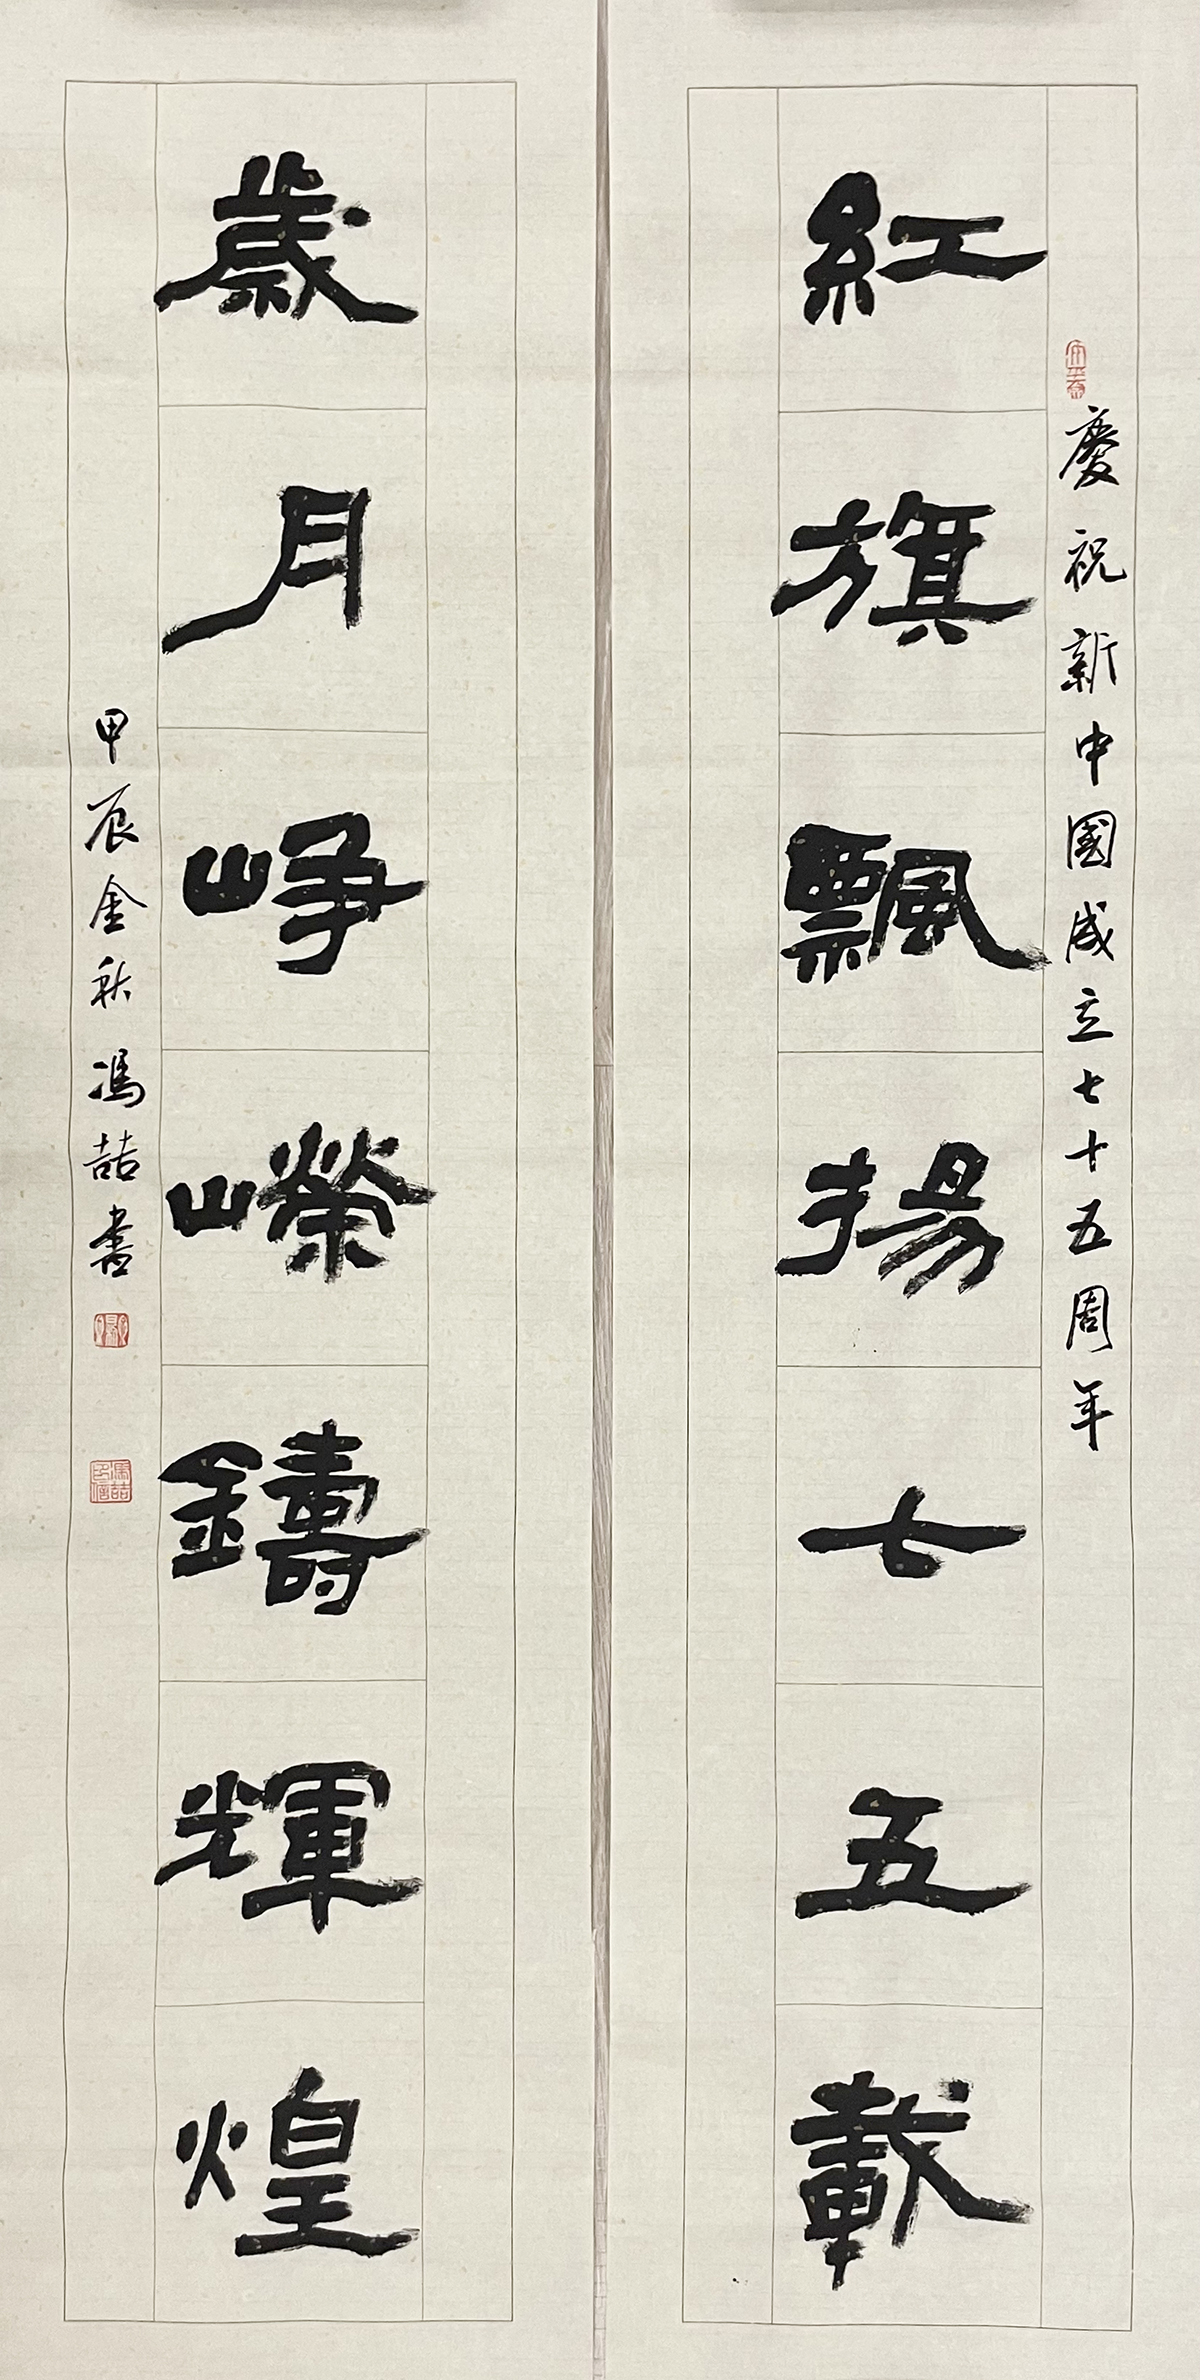 慶祝新中國成立七十五周年
紅旗飄揚七五載
歲月崢嶸鑄輝煌
甲辰金秋馮喆書
馮喆印信